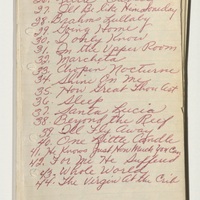 27. I'll Be like Him Someday
28. Brahms Lullaby
29. Going Home
30. I only Know
31. In the Upper Room
32. Marcheta
33. Chopin Nocturne
34. Shine On Me
35. How Great Thou Art
36. Sleep
37. Santa Lucia
38. Beyond the Reef
39. I'll Fly Away
40. One Little Candle
41. He Knows Just How Much You Can
42. For Me He Suffered
43. Whole World
44. The Virgin At the Crib